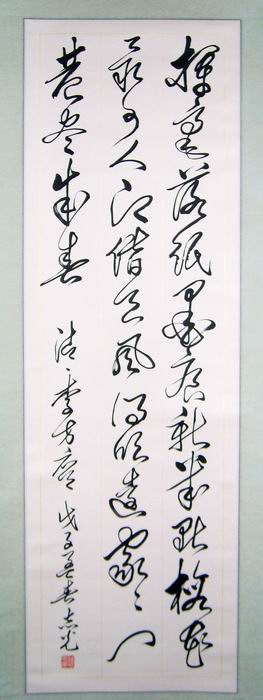 揮毫落紙墨痕新幾點梅花
最可人願借天風得吹遠家々門
巷盡成春
清、李方膺 戊子孟春志光